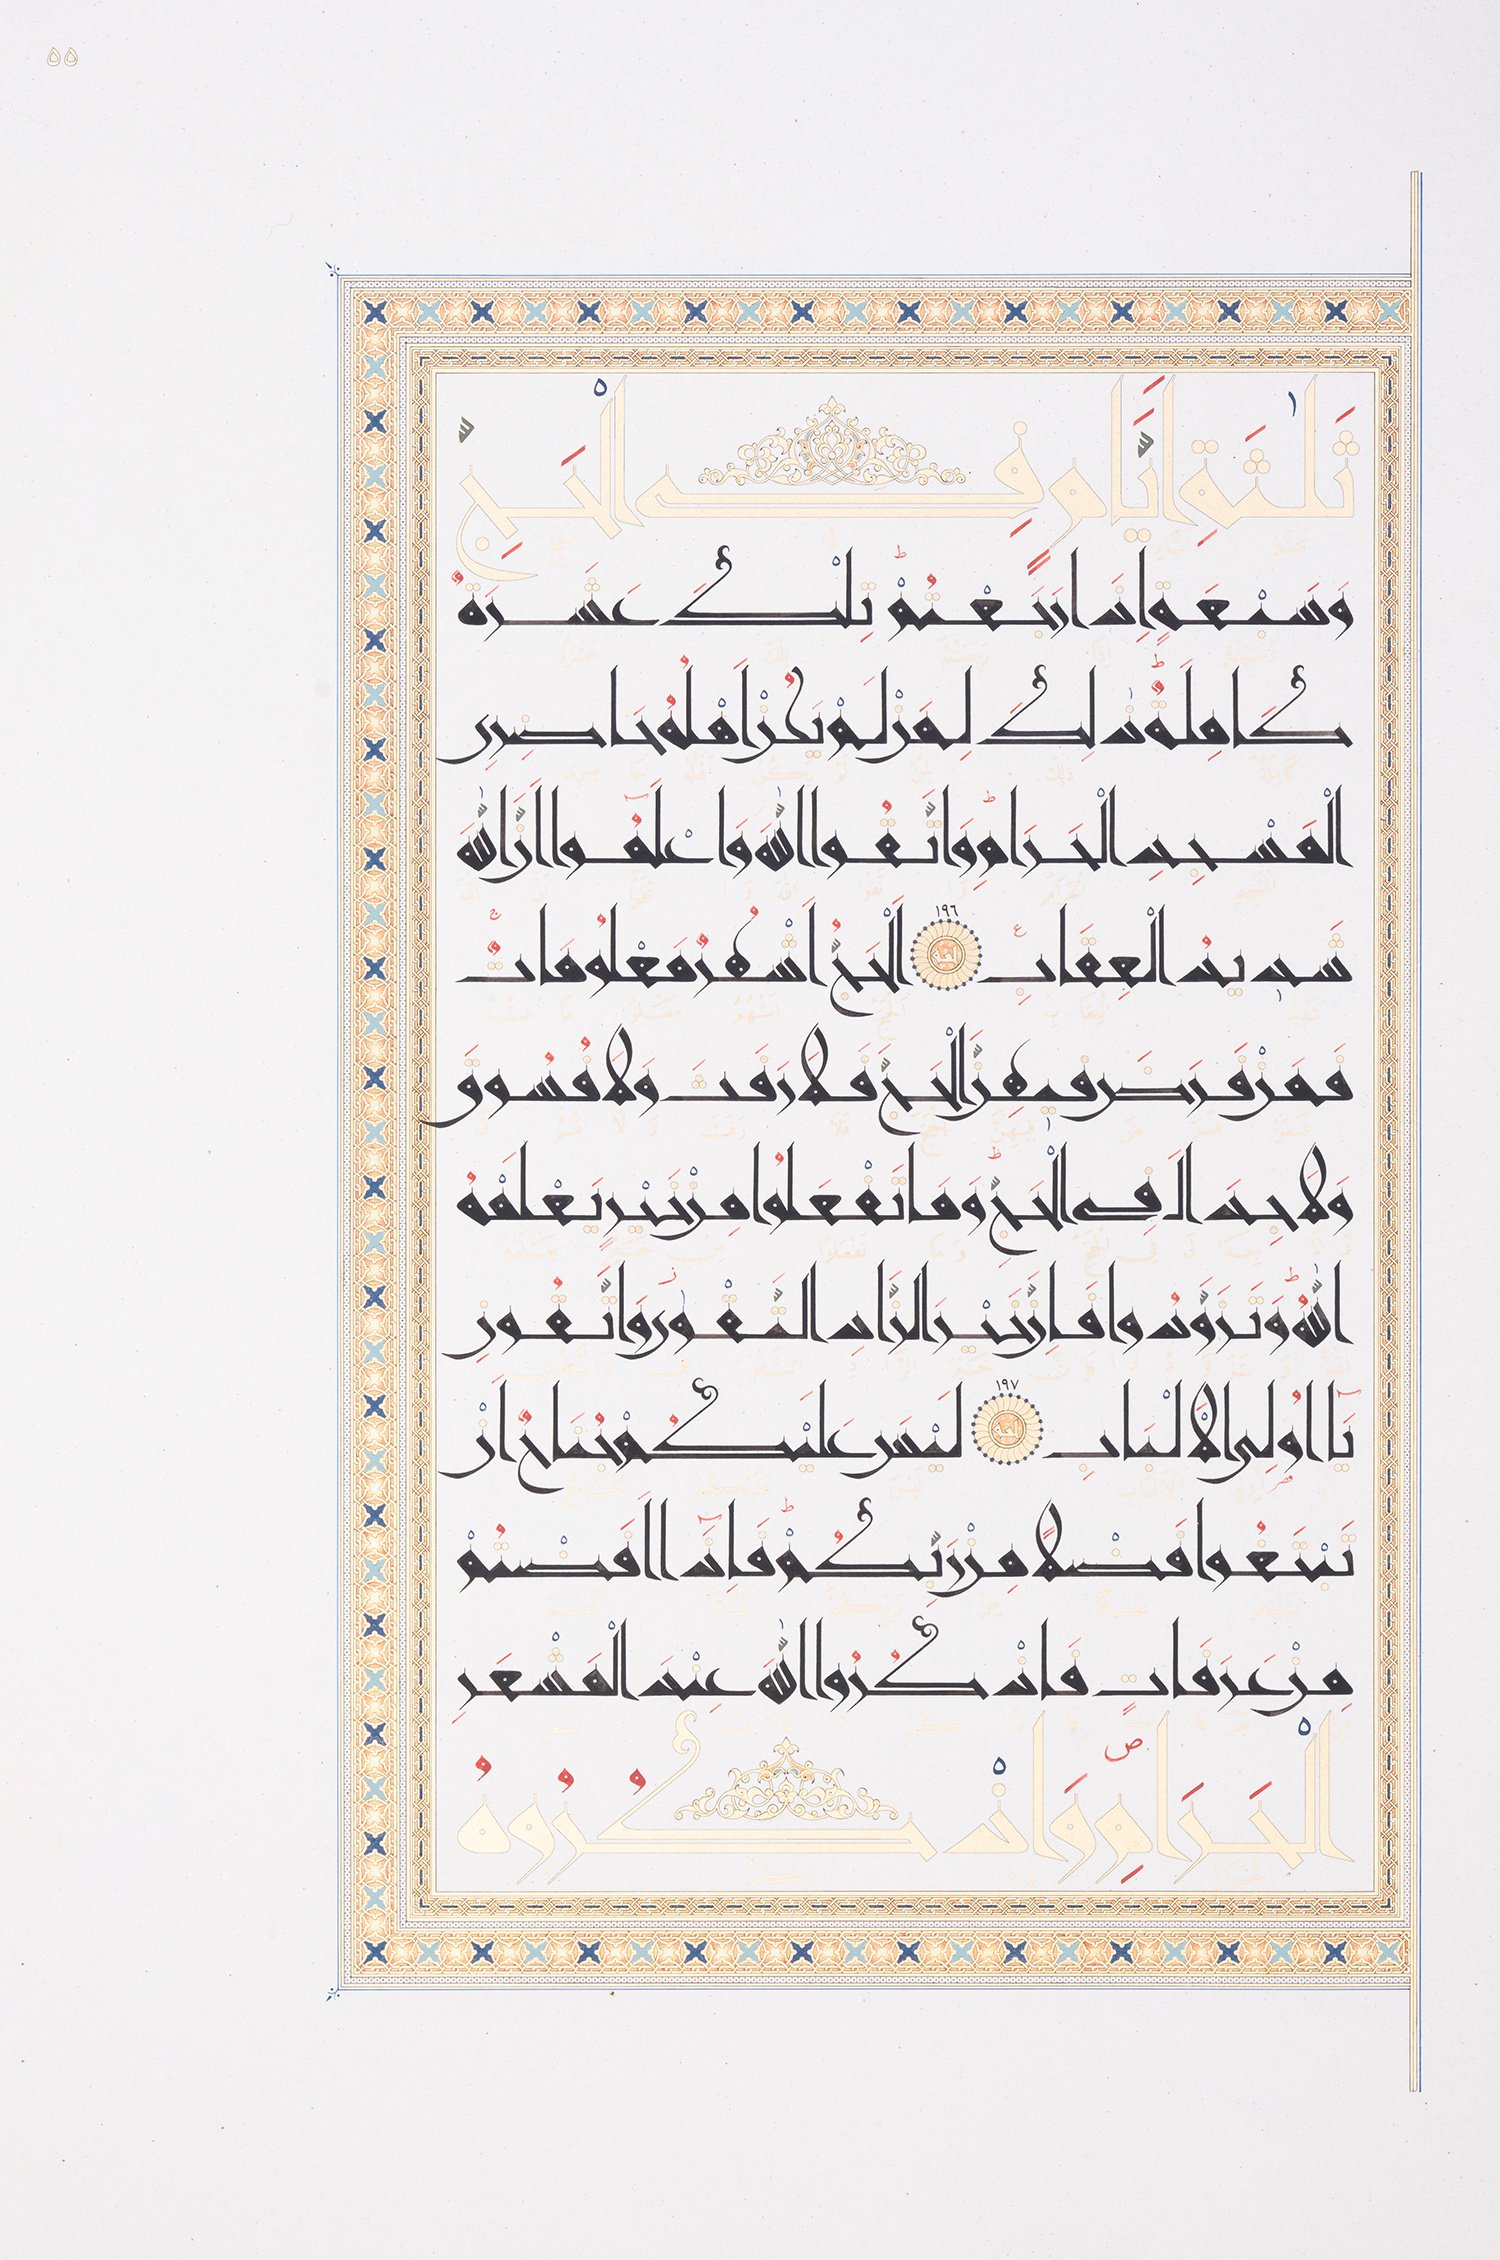 ۵۵
ثَلٰثَةِ اَيَّامٍ فِي الْحَجِّ
وَسَبْعَةٍ اِذَا رَجَعْتُمْ ۭ تِلْكَ عَشَرَةٌ
كَامِلَةٌ ۭ ذٰلِكَ لِمَنْ لَمْ يَكُنْ اَهْلُهُ حَاضِرِي
الْمَسْجِدِ الْحَرَامِ ۭ وَاتَّقُوا اللّٰهَ وَاعْلَمُوا اَنَّ اللّٰهَ
شَدِيدُ الْعِقَابِ ١٩٦ اَلْحَجُّ اَشْهُرٌ مَعْلُومَاتٌ ۚ
فَمَنْ فَرَضَ فِيهِنَّ الْحَجَّ فَلَا رَفَثَ وَلَا فُسُوقَ
وَلَا جِدَالَ فِي الْحَجِّ ۭ وَمَا تَفْعَلُوا مِنْ خَيْرٍ يَعْلَمْهُ
اللّٰهُ ۭ وَتَزَوَّدُوا فَاِنَّ خَيْرَ الزَّادِ التَّقْوٰى وَاتَّقُونِ
يَا اُولِي الْاَلْبَابِ ١٩٧ لَيْسَ عَلَيْكُمْ جُنَاحٌ اَنْ
تَبْتَغُوا فَضْلًا مِنْ رَبِّكُمْ ۭ فَاِذَا اَفَضْتُمْ
مِنْ عَرَفَاتٍ فَاذْكُرُوا اللّٰهَ عِنْدَ الْمَشْعَرِ
الْحَرَامِ ۖ وَاذْكُرُوهُ